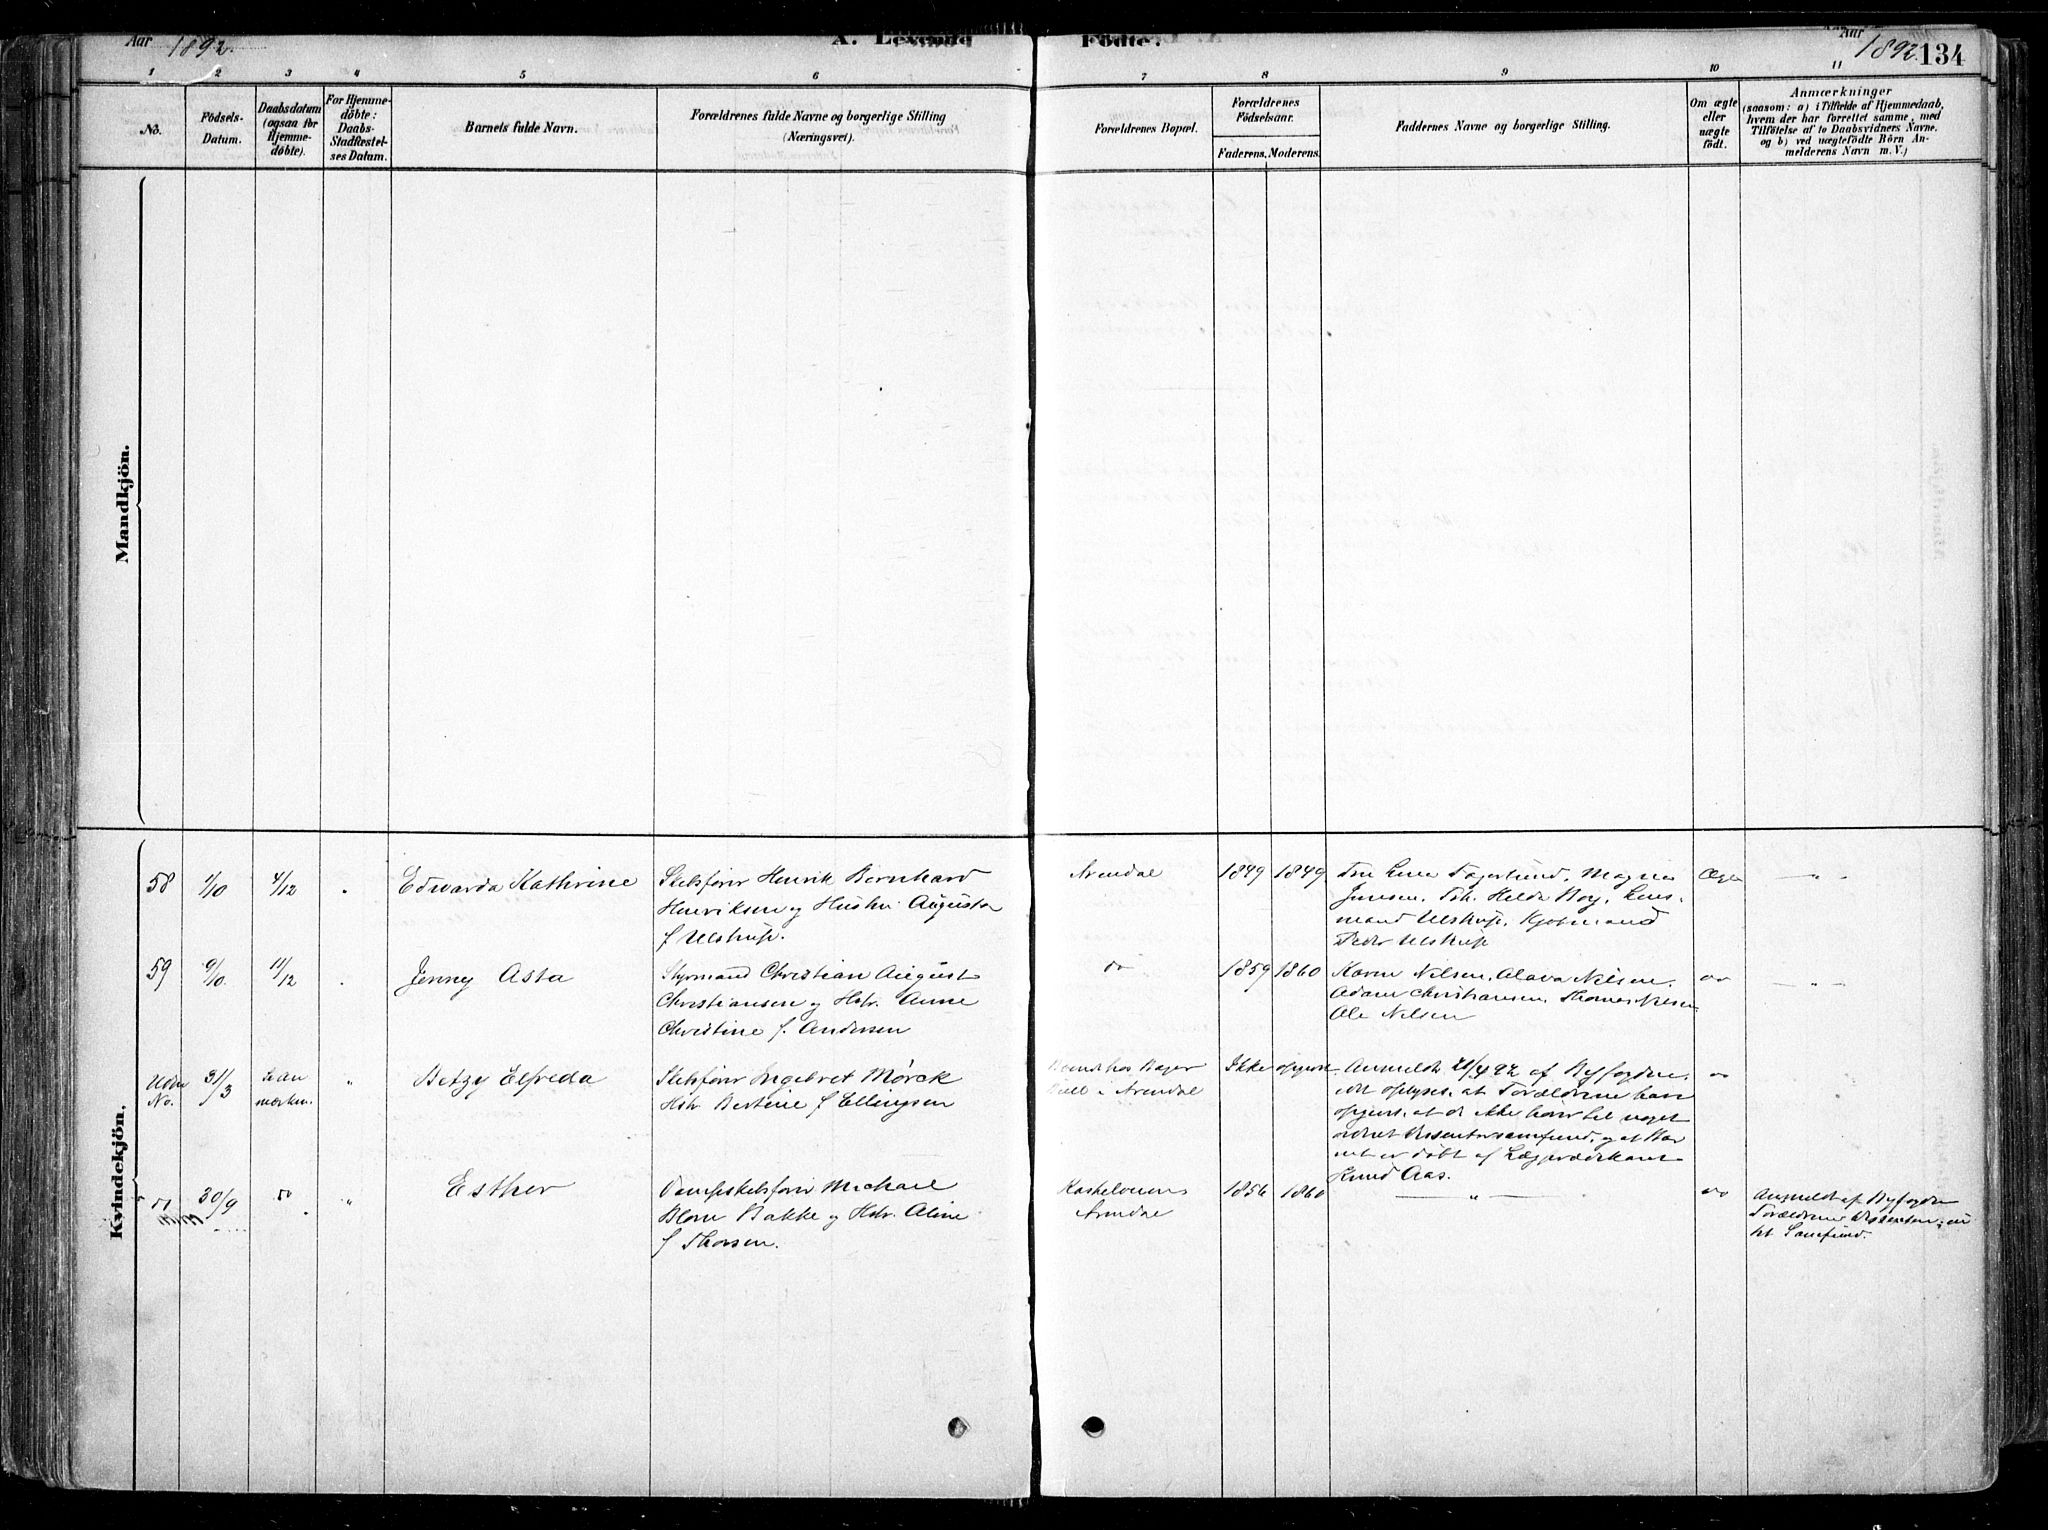 Aar 1892.
A. Levende Födte.
Aar 1892. 134
1 2 3 4 5 6 7 8 9 10 11
No.
Födsels-Datum.
Daabsdatum (ogsaa for Hjemme-döbte).
For Hjemme-döbte: Daabs-Stadfæstel-ses Datum.
Barnets fulde Navn.
Forældrenes fulde Navne og borgerlige Stilling (Næringsvei).
Forældrenes Bopæl.
Forældrenes Födselsaar.
Faderens. Moderens.
Faddernes Navne og borgerlige Stilling.
Om ægte eller uægte födt.
Anmærkninger
(saasom: a) i Tilfælde af Hjemmedaab,
hvem der har forrettet samme, med
Tilföielse af to Daabsvidners Navne.
og b) ved uægtefödte Börn An-
melderens Navn m. V.)
Mandkjön.
Kvindekjön.
58 1/10 4/12 " Edwarda Kathrine
Skibsfører Henrik Bernhard
Henriksen og Hustru Augusta
f Ulstrup.
Arendal 1849 1849
Fagerlund, Magnus
Jensen,
mand Ulstrup, Kjøbmand
Peder Ulstrup
Ægte — " —
59 9/10. 11/12 " Jenny Asta
Styrmand Christian August
Christiansen og Hstr. Anne
Christine f. Andersen
do 1859 1860
Karen Nilsen, Nilsen,
Adam Christiansen, Thomas Nilsen
Ole Nilsen
do — " —
Uden No. 31/3 " Betzy Elfreda
Skibsfører Ingebret Mørck
Hstr Bertine f Ellingsen
Bager
i Arendal
Ikke opgivet
Anmeldt 92 af Byfogden,
idet oplyses, at Forældrene have
opgivet, at de ikke hører til noget
ordnet Dissentersamfund, og at Bar
net er døbt af
Knud Aas.
do
do 30/9 do " Esther
Dampskibsfører Michael
Blom Bakke og Hstr. Aline
f Thorsen.
Arendal
1856 1860 — " — do
Anmeldt af Byfogden
Forældrene Dissentere,
Samfund.